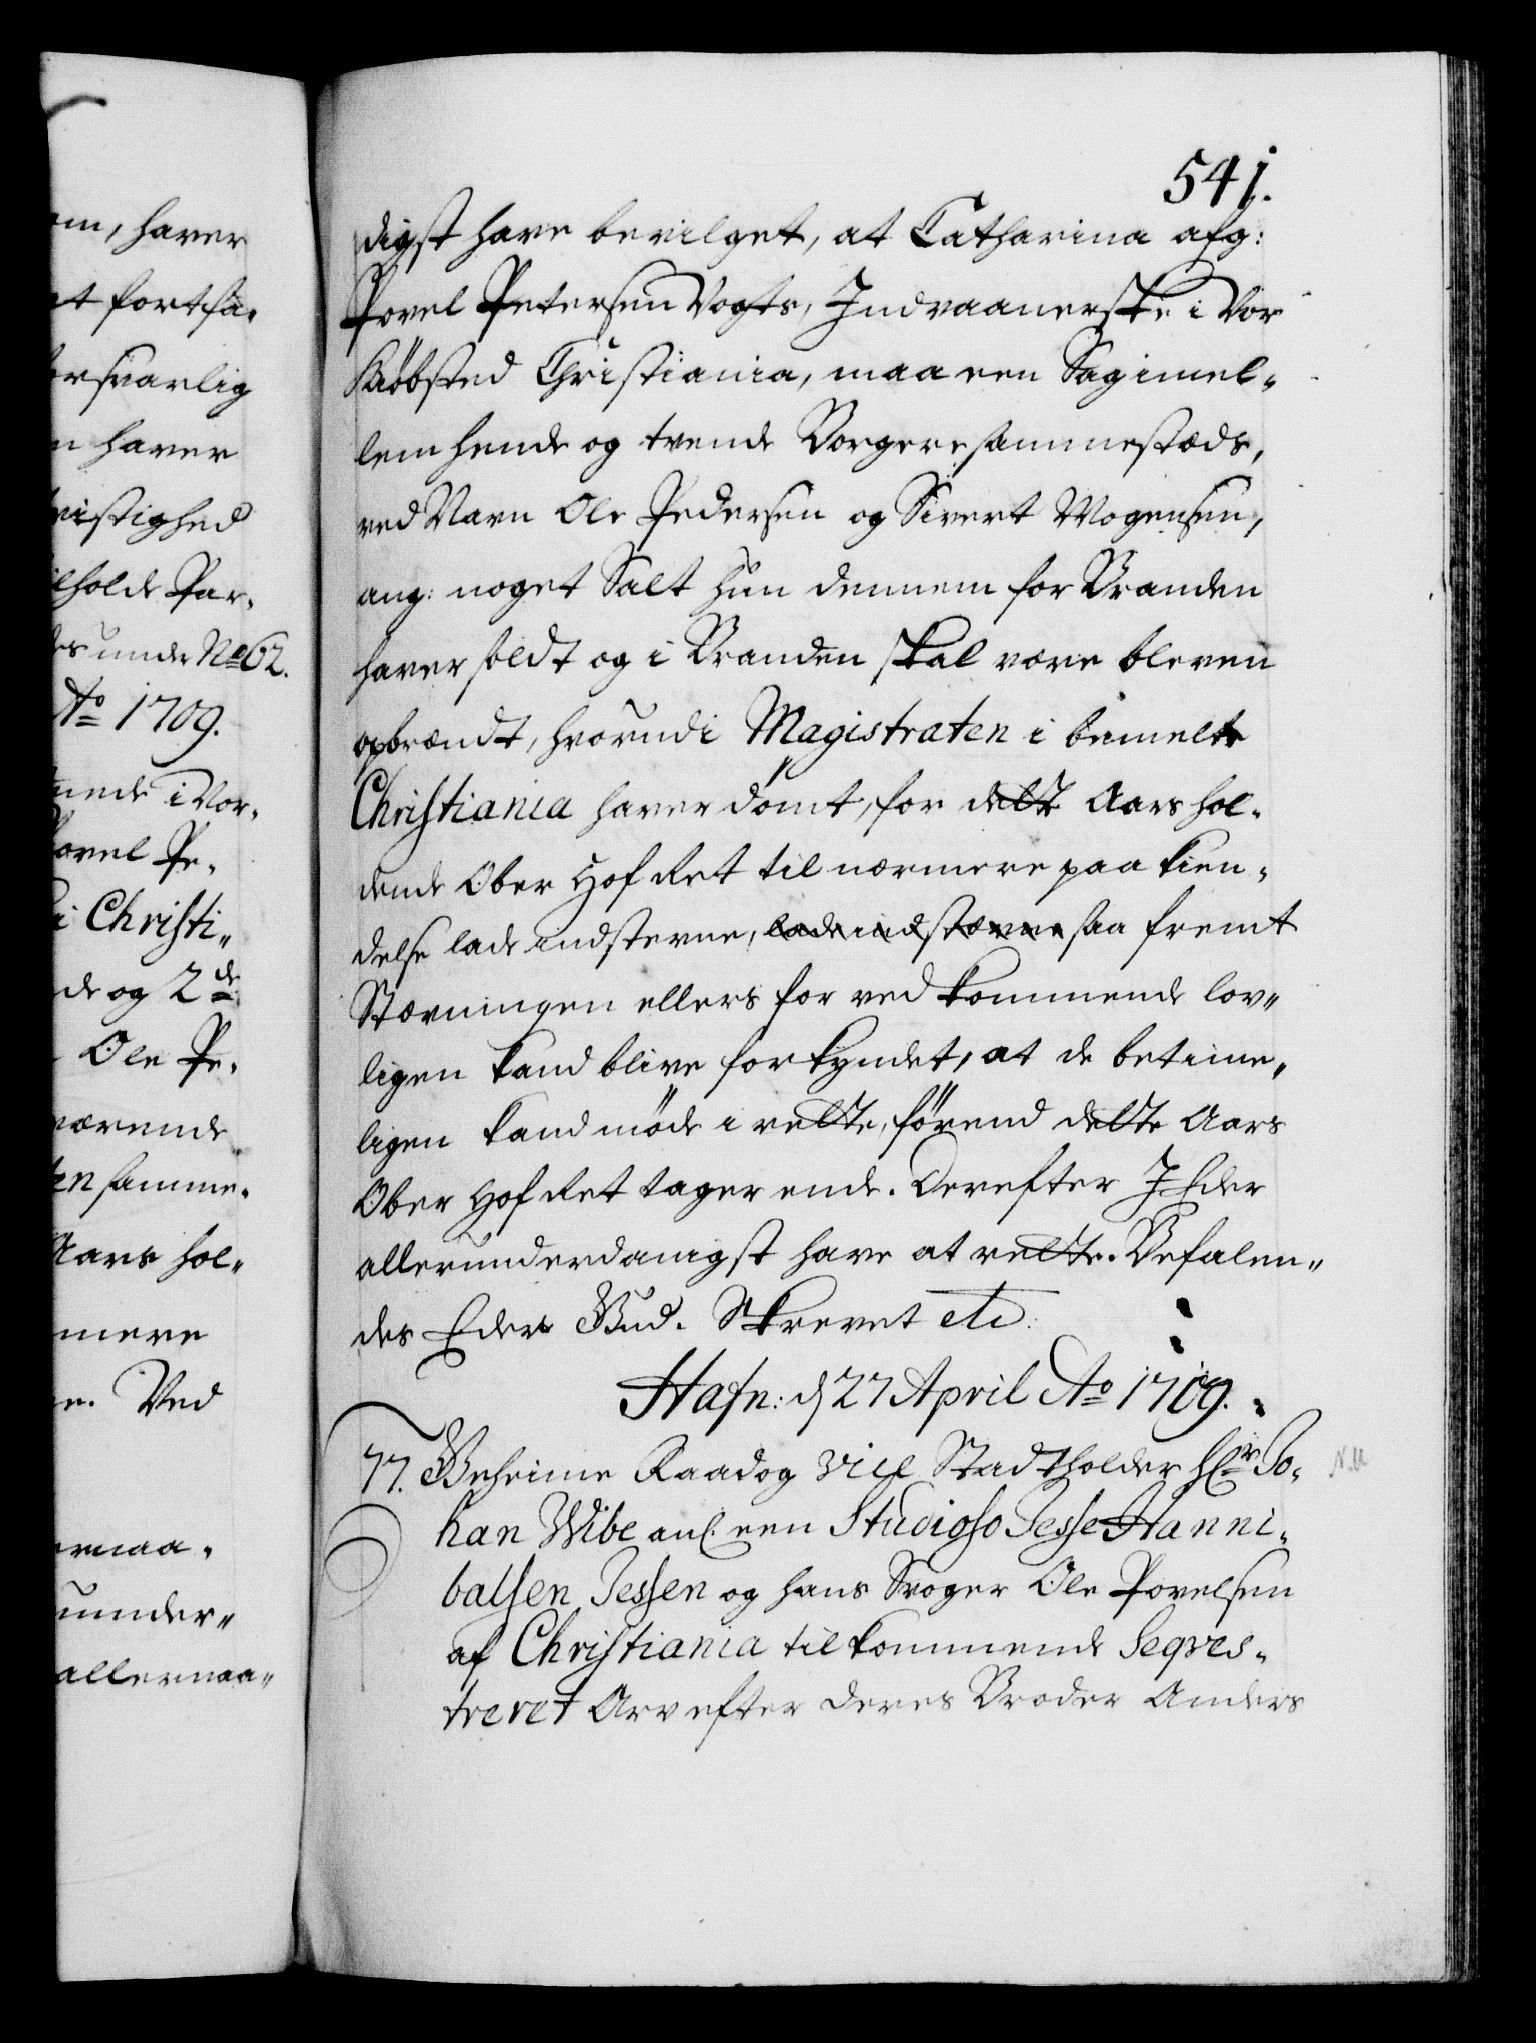 541.
digst have bevilget, at Catharina afg:
Povel Petersen Vogts, Indvaanerske i Vor
Kiøbsted Christiania, maa een Sag imel-
lem hende og tvende Borgere sammestæds,
ved Navn Ole Pedersen og Sivert Mogensen,
ang: noget Salt hun dennem for Branden
haver soldt og i Branden skal være bleven
opbrændt, hvorudi Magistraten i bemelte
Christiania haver dömt, for dette Aars hol-
dende Ober Hof Ret til nærmere paa kien-
delse lade indsterne, lade indstævne saa fremt
Stævningen ellers for ved kommende lov-
ligen kand blive forkyndet, at de betime-
ligen kand möde i rette, förend dette Aars
Ober Hof Ret tager ende. Derefter I Eder
allerunderdanigst have at rette. Befalen-
des Eder Gud. Skrevet etc:
Hafn: d 27 April Ao 1709.
77. Geheime Raad og Vice Stadtholder Hr Jo-
han Wibe anl. een Studioso Jesse Hanni-
balsen Jessen og hans Svoger Ole Povelsen
af Christiania tilkommende Seqves-
treret Arv efter deres Broder Anders
em, haver
at fortfa-
orsvarlig
n haver
vistighed
ilholde Par-
es under No 62.
Ao 1709.
mede i Vor-
Povel Pe-
i Christi-
de og 2de
Ole Pe-
værende
ten samme-
Aars hol-
mere
e. Ved
ernaa-
under-
allernaa-